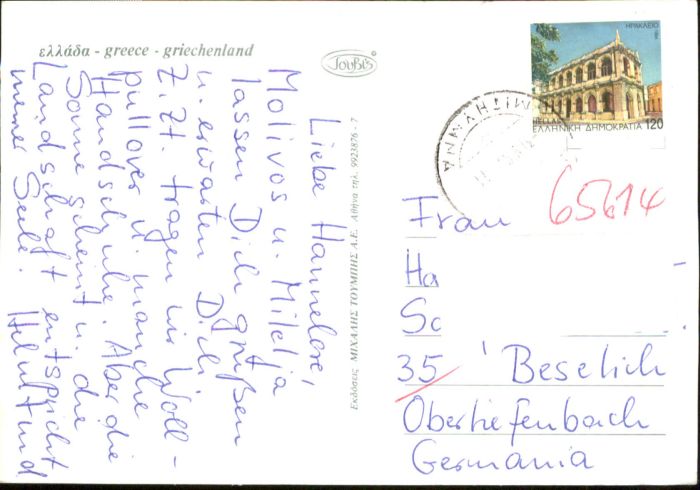 ελλάδα - greece - griechenland
ΤουΒί'ς
Liebe Hannelore,
Molivos u. Militja
lassen Dich grüßen
u. erwarten Dich.
Z.Zt. tragen wir Woll-
pullover u. manche
Handschuhe. Aber die
Sonne scheint u. die
Landschaft entspricht
meiner Seele. Helmtrud
Εκδόσεις ΜΙΧΑΛΗΣ ΤΟΥΜΠΗΣ Α.Ε. Αθήνα τηλ. 9923876 - 7
ΗΡΑΚΛΕΙΟ
HELLAS
ΕΛΛΗΝΙΚΗ ΔΗΜΟΚΡΑΤΙΑ 120
ΜΗΘΥΜΝΑ
65614
Frau
Ha
Sc
35 Beselich
Obertiefenbach
Germania